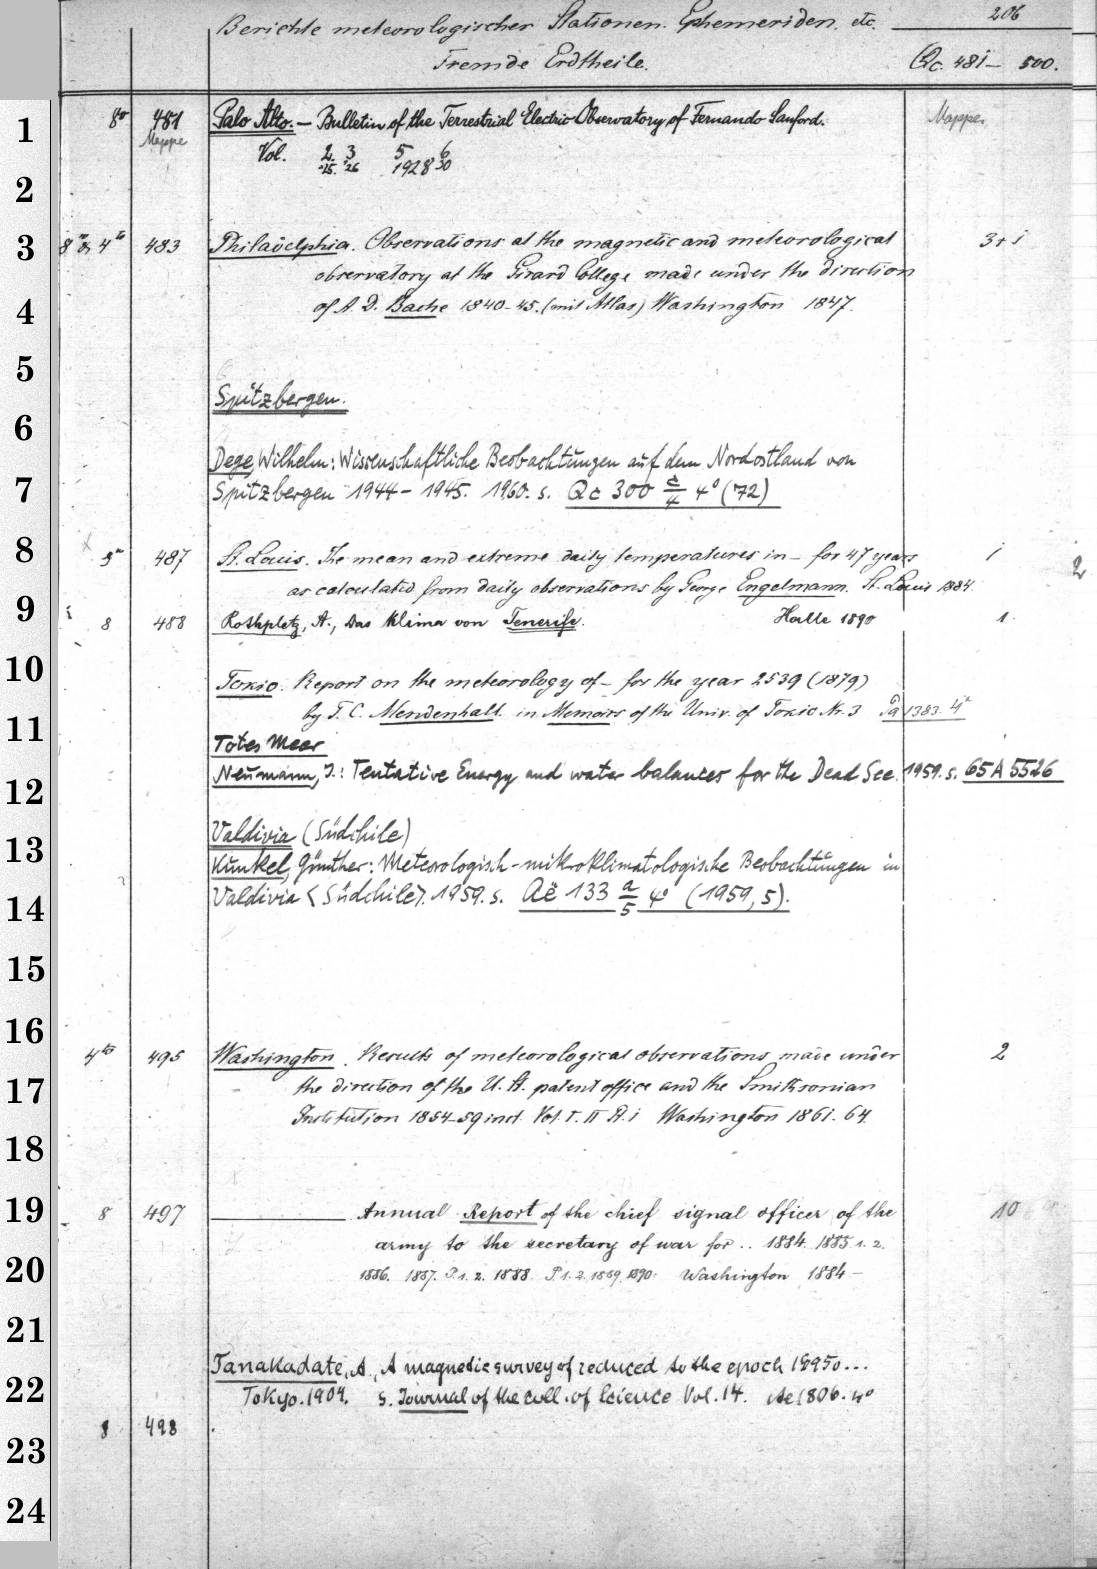 206
Berichte meteorologischer Stationen. Ephemeriden. etc.
Fremde Erdtheile.
Qc. 481– 500.
1
8° 481 Palo Alto. – Bulletin of the Terrestrial Electric Observatory of Fernando Sanford. Mappe
Mappe
Vol. 2 3 5 6
25. 26 1928 30
2
3
8° & 4to 483 Philadelphia. Observations at the magnetic and meteorological 3+1
observatory at the Girard College made under the direction
4
of A. D. Bache 1840–45. (mit Atlas) Washington 1847.
5
Spitzbergen.
6
Dege, Wilhelm: Wissenschaftliche Beobachtungen auf dem Nordostland von
7
Spitzbergen 1944–1945. 1960. s. Qc 300 c/4 4° (72)
8
487 St. Louis. The mean and extreme daily temperatures in – for 47 years 1
as calculated from daily observations by George Engelmann. St. Louis 1884.
2
9
8 488 Rothpletz, A., Das Klima von Tenerife. Halle 1890 1.
10
Tokio. Report on the meteorology of – for the year 2539 (1879)
11
by T. C. Mendenhall. in Memoirs of the Univ. of Tokio Nr. 3 1383. 4°
Totes Meer
12
Neumann, J.: Tentative Energy and water balances for the Dead See. 1959. s. 65 A 5526
13
Valdivia (Südchile)
Kunkel, Günther: Meteorologisch-mikroklimatologische Beobachtungen in
14
Valdivia <Südchile>. 1959. s. Aë 133 a/5 4° (1959, 5).
15
16
4to 495 Washington. Results of meteorological observations made under 2
17
the direction of the U. St. patent office and the Smithsonian
Institution 1854–59 incl. Vol. I. II P. i Washington 1861. 64.
18
19
8 497 Annual Report of the chief signal officer of the 10
army to the secretary of war for .. 1884. 1885. 1. 2.
20
1886. 1887. P. 1. 2. 1888. P. 1. 2. 1889. 1890. Washington 1884–
21
Tanakadate, A., A magnetic survey of reduced to the epoch 1895.0...
22
Tokyo. 1904. s. Journal of the coll. of Science Vol. 14. Ac 1806. 4°
8 498
23
24